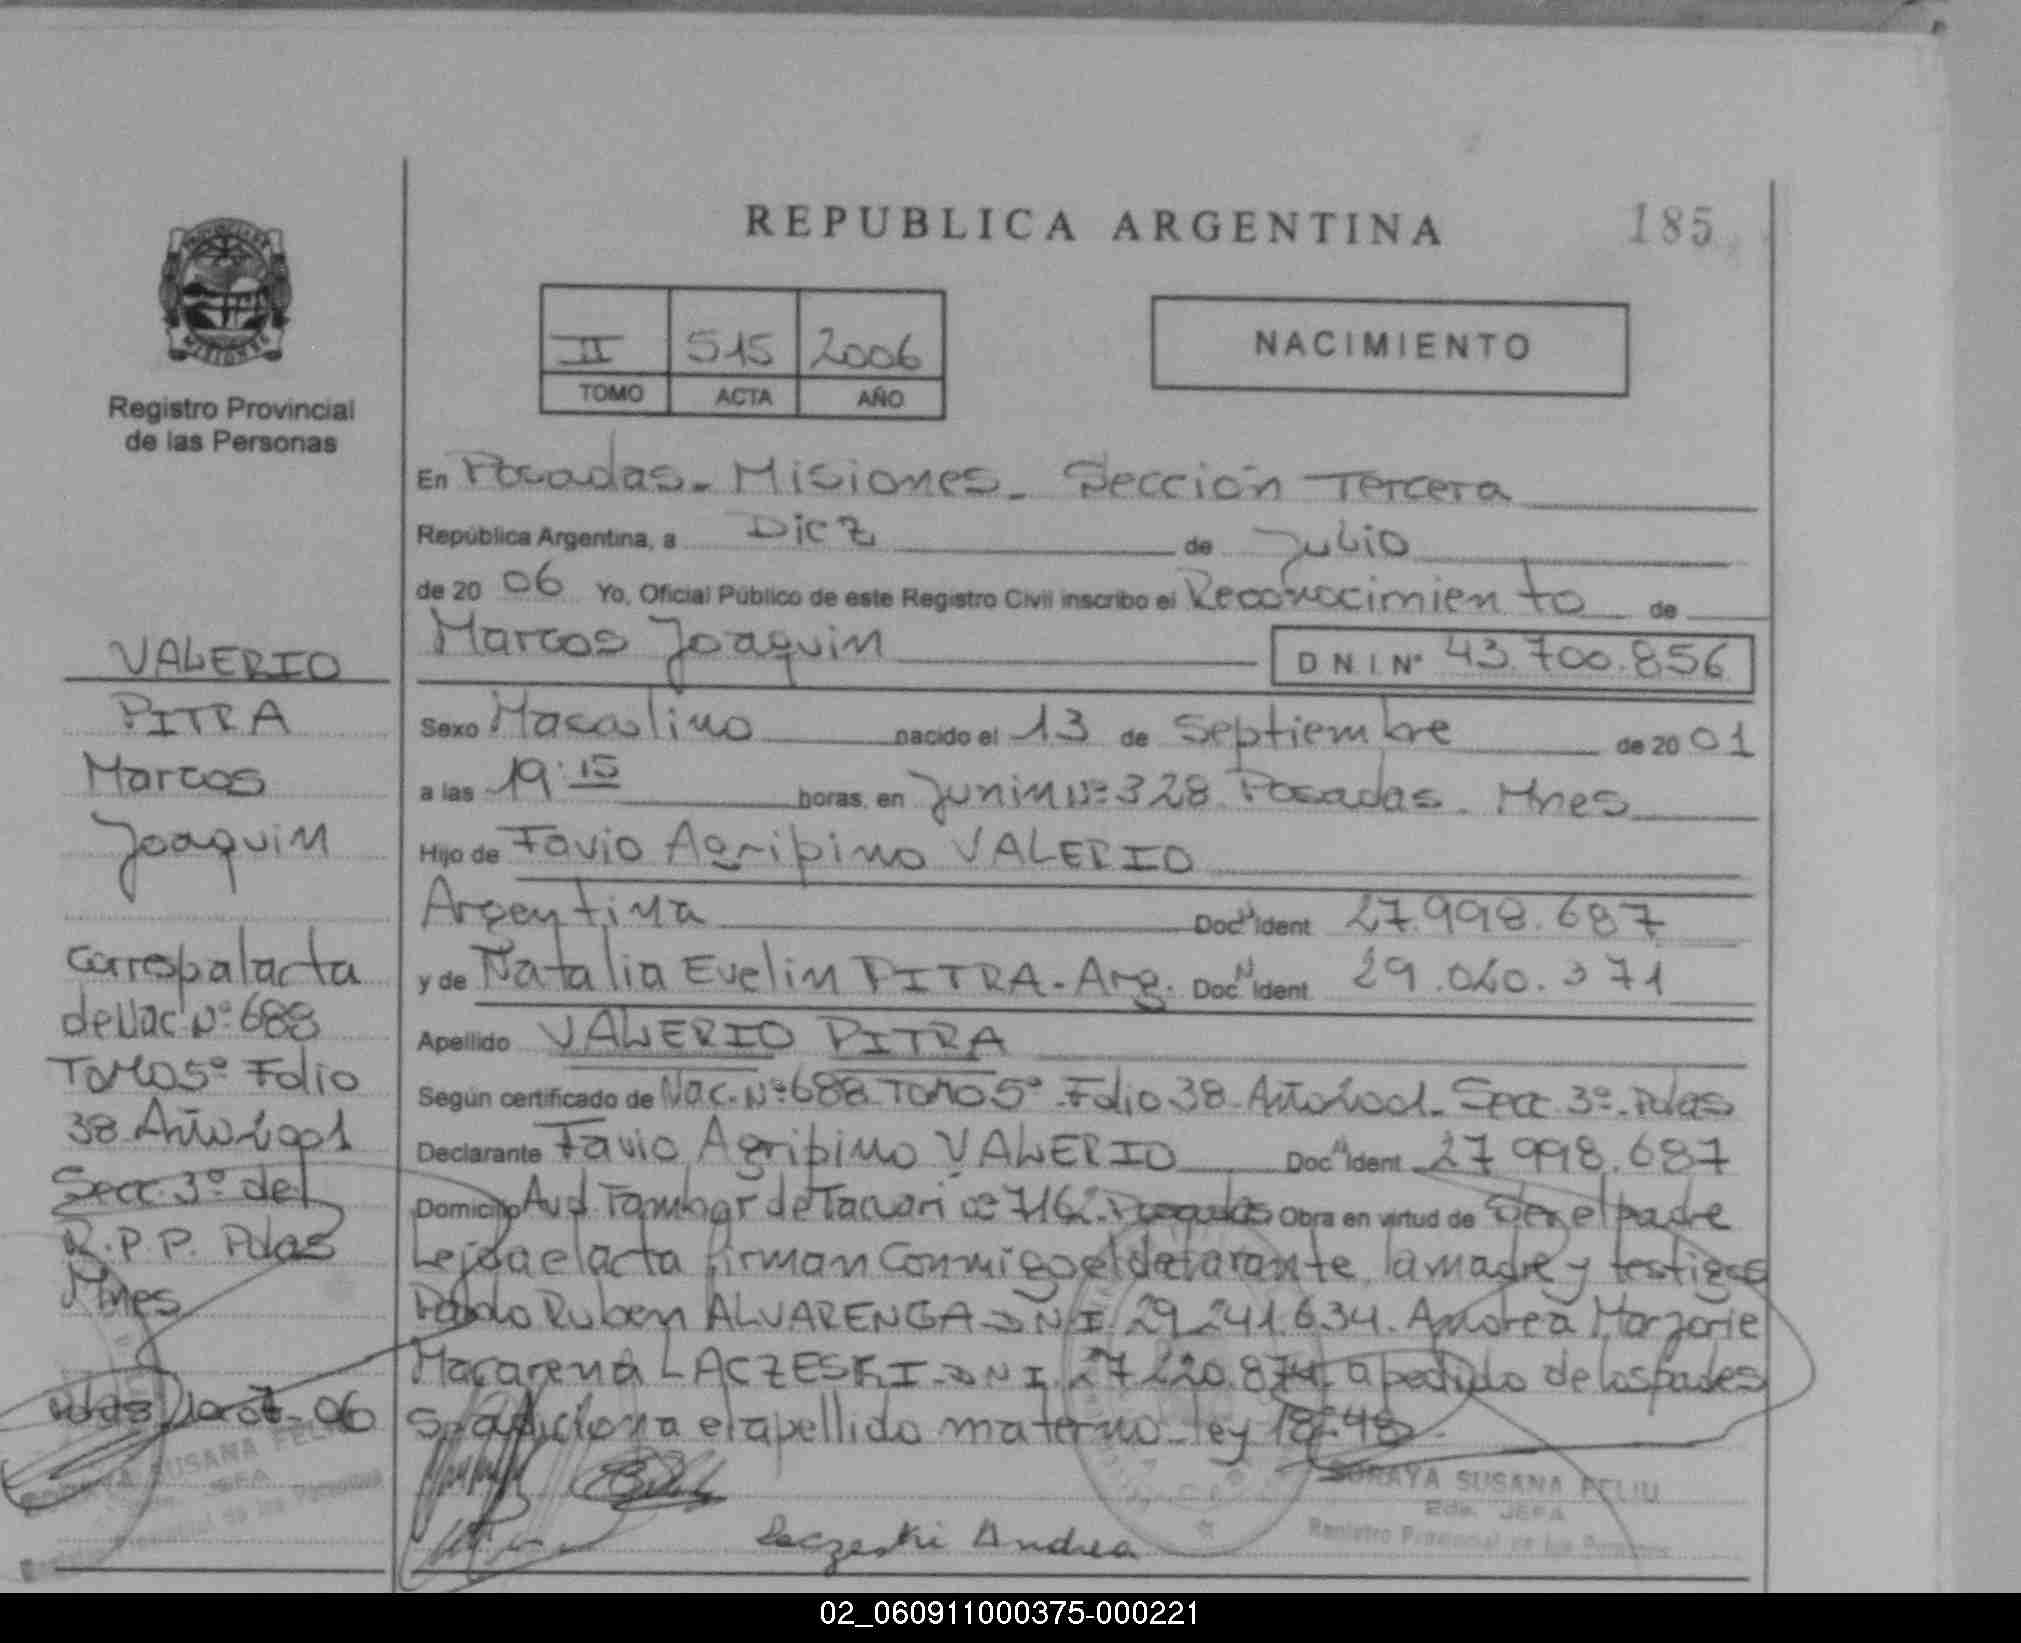 REPUBLICA ARGENTINA
185
MISIONES
Registro Provincial
de las Personas
II 515 2006
TOMO ACTA AÑO
NACIMIENTO
En Posadas - Misiones - Sección Tercera
República Argentina, a Diez de Julio
de 20 06 Yo, Oficial Público de este Registro Civil inscribo el Reconocimiento de
Marcos Joaquin D N.I.Nº 43.700.856
Sexo Masculino nacido el 13 de Septiembre de 20 01
a las 19:15 horas, en Junin Nº 328. Posadas - Mnes
Hijo de Favio Agripino VALERIO
Argentina Doc N Ident 27.998.687
y de Natalia Evelin PITRA - Arg. Doc N Ident 29.060.371
Apellido VALERIO PITRA
Según certificado de Nac. Nº 688 Tomo 5º Folio 38 Año 2001 - Secc 3º - Pdas
Declarante Favio Agripino VALERIO Doc N Ident 27 998.687
Domicilio Avd. Tambor de Tacuari 7162 Posadas Obra en virtud de Ser el padre
Leída el acta firman Conmigo el declarante, la madre y testigos
Pablo Ruben ALVARENGA - DNI 29.241.634. Andrea Marjorie
Macarena LACZESKI - DNI 27.220.874 a pedido de los padres
Se adiciona el apellido materno - ley 18248 -
Laczeski Andrea
SORAYA SUSANA FELIU
Eda. JEFA
Registro Provincial de las Personas
VALERIO
PITRA
Marcos
Joaquin
Corresp al acta
de Nac Nº 688
Tomo 5º Folio
38 Año 2001
Secc. 3º del
R.P.P. Pdas
Mnes
Pdas 10-07-06
SORAYA SUSANA FELIU
JEFA
Registro Provincial de las Personas
02_060911000375-000221